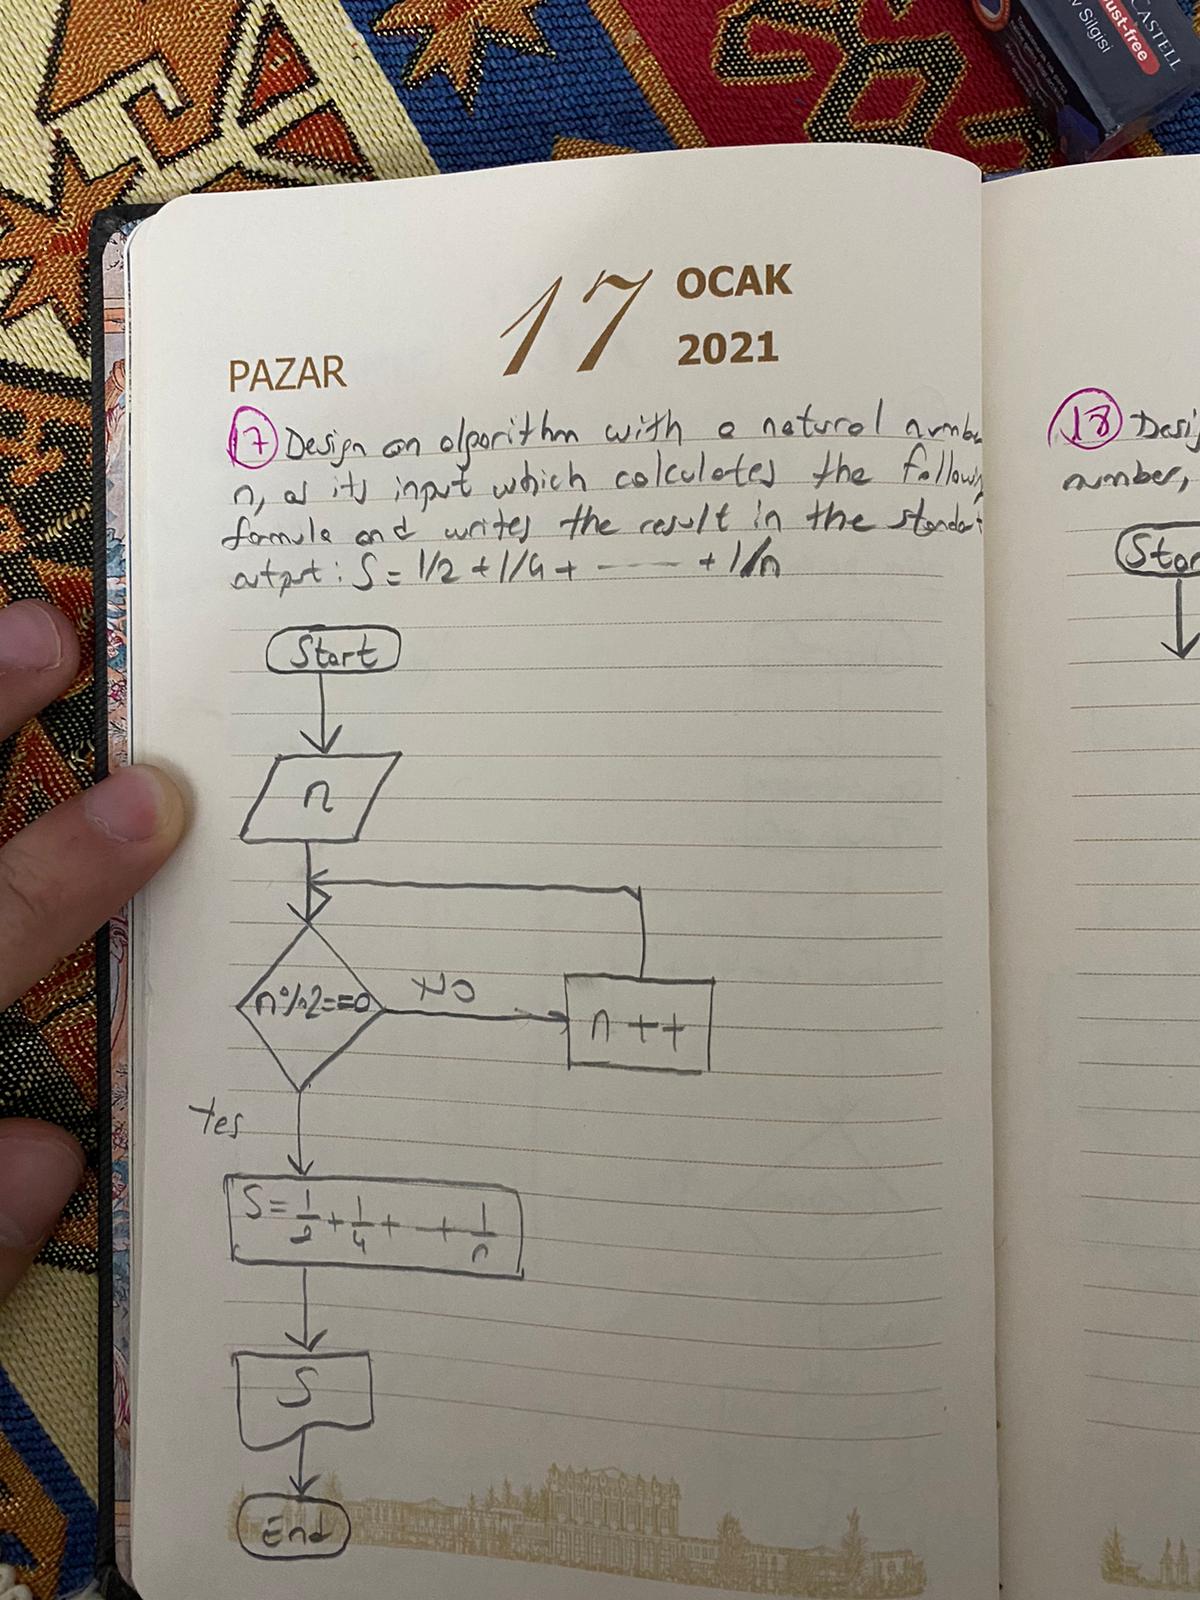 CASTELL
ust-free
v Silgisi
17 OCAK
2021
PAZAR
17 Design an algorithm with a natural numbe
n, as its input which calculates the follow
formula and writes the result in the standa
output: S = 1/2 + 1/4 + ------ + 1/n
Start
n
n%2==0
NO
n++
Yes
S = 1/2 + 1/4 + -- + 1/n
S
End
18 Desi
number,
Star